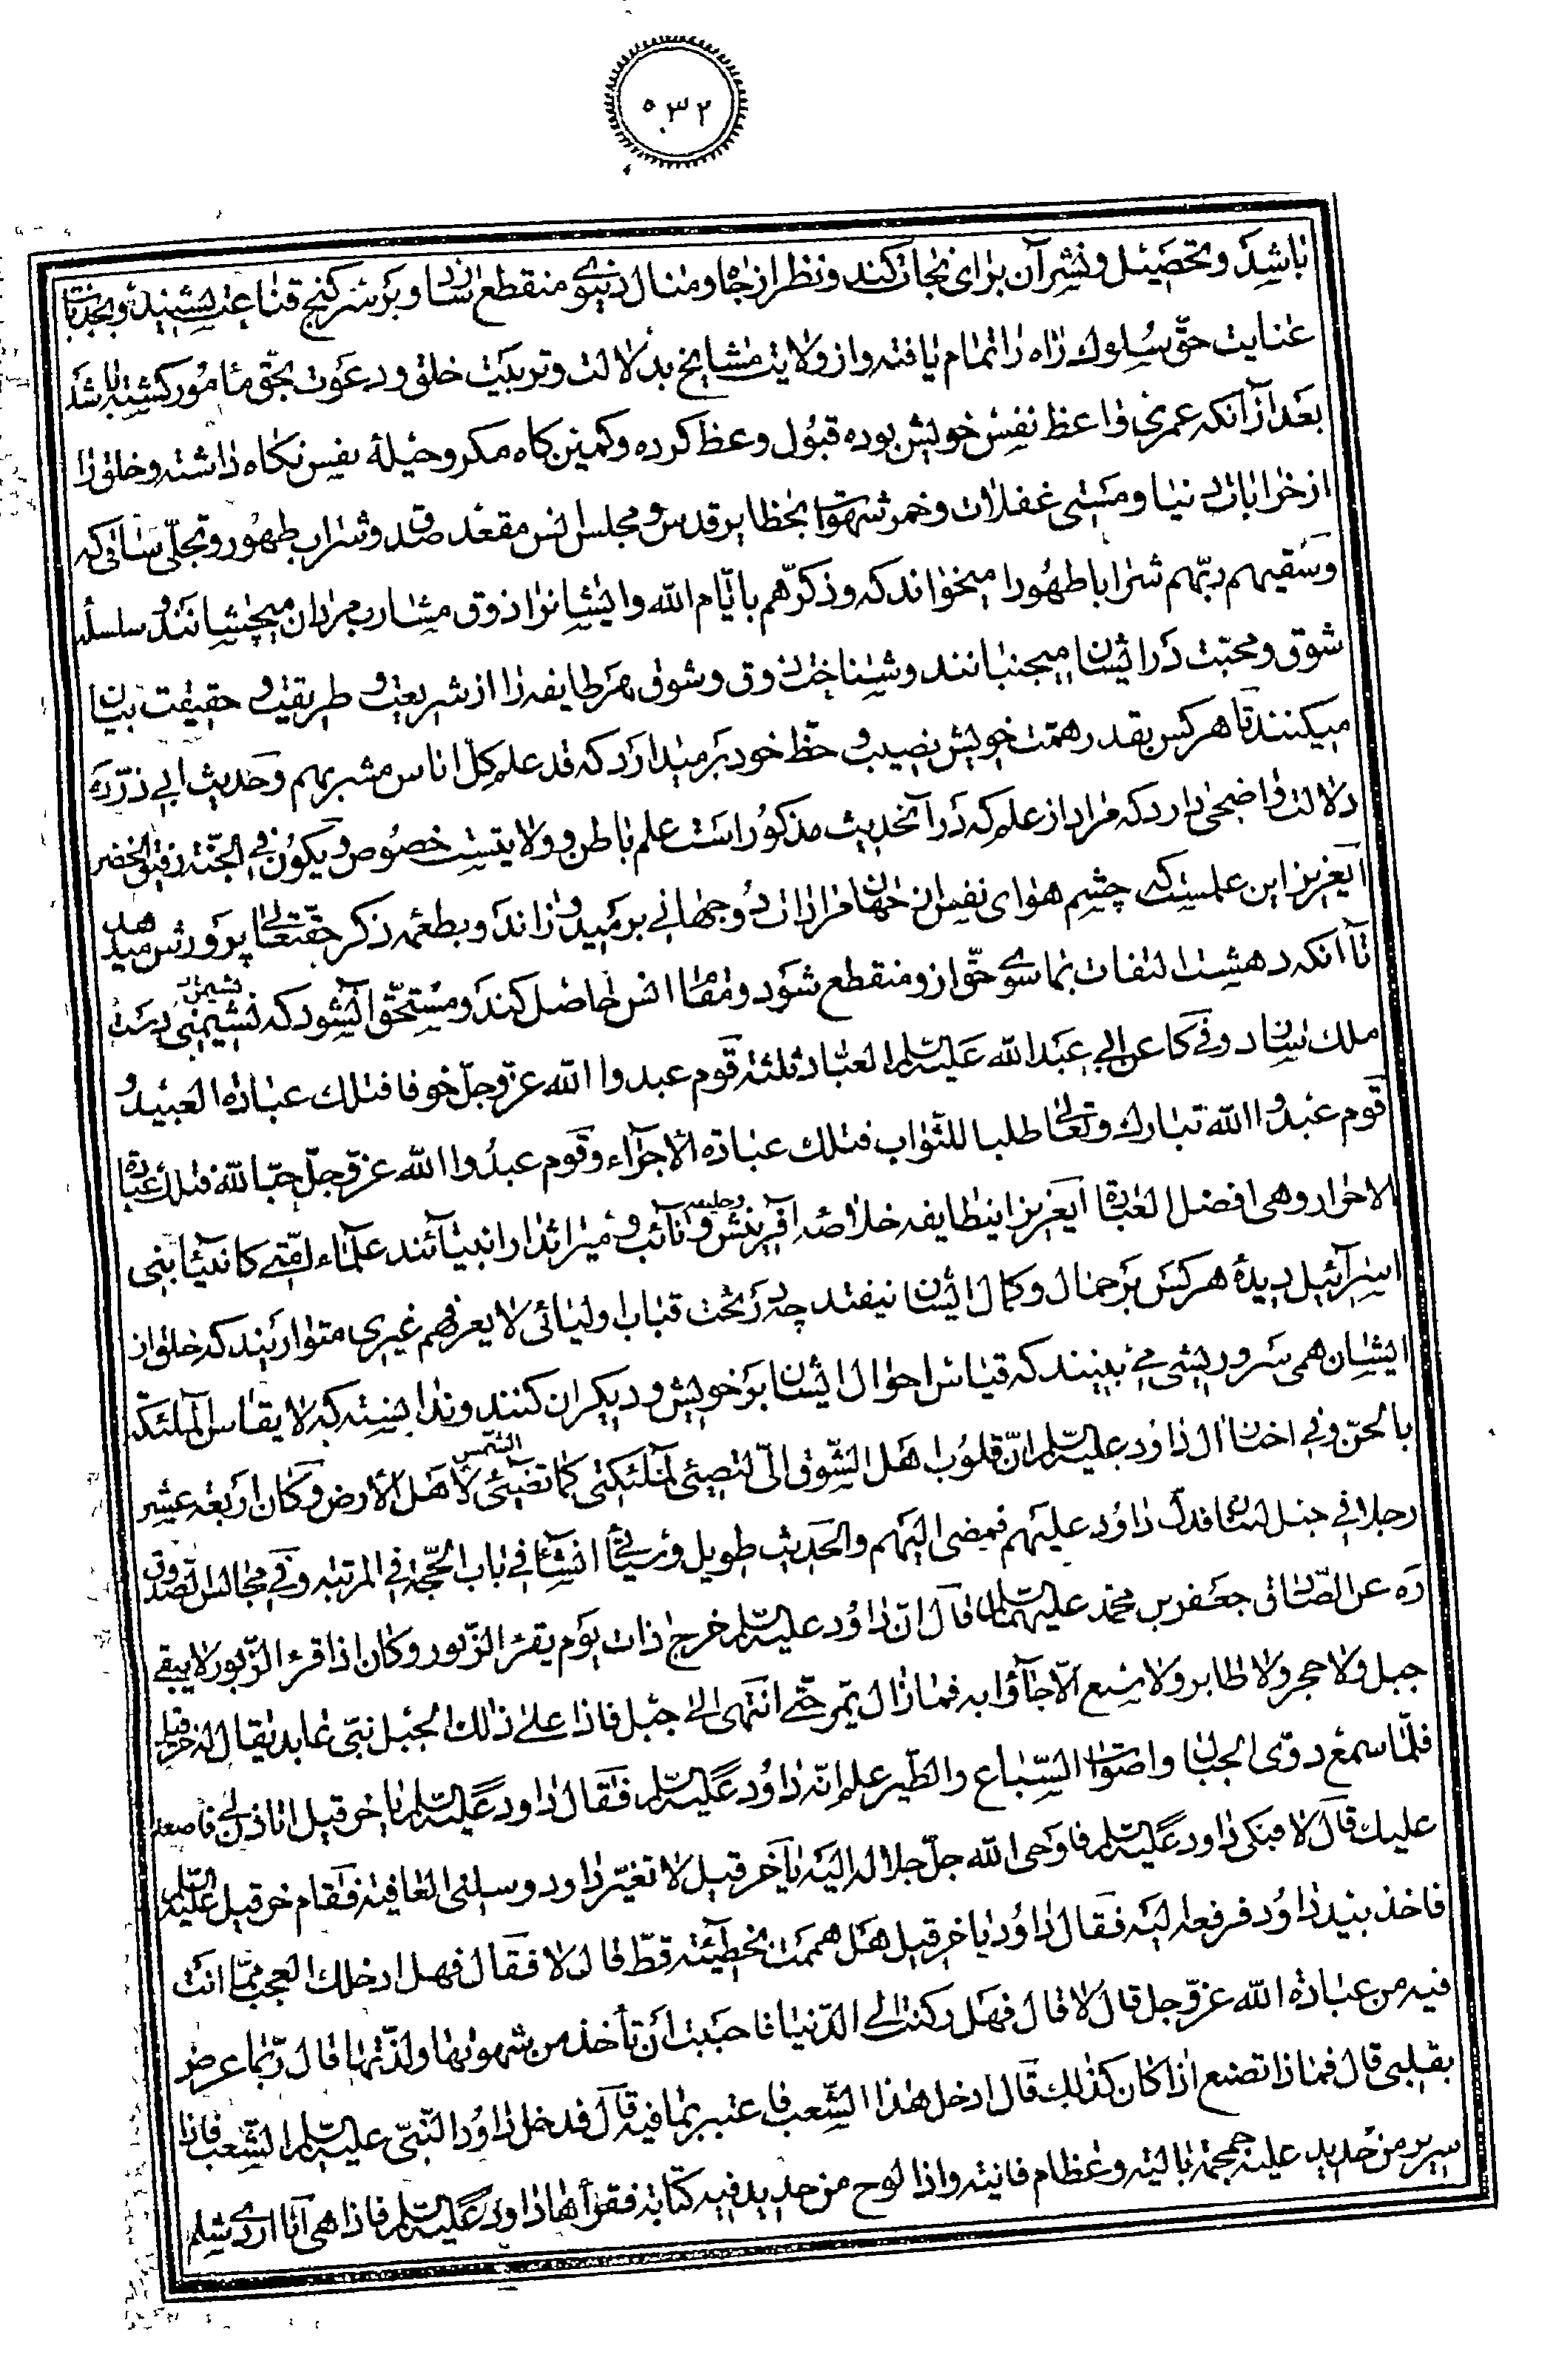 ۵۳۲
باشد و تحصیل و نشر آن برای نجات کند و نظر از جاه و منال دنیوی منقطع سازد و بر سر کنج قناعت نشیند و بجذبات
عنایت حق سلوک راه را تمام یافته و از ولایت مشایخ بدلالت و تربیت خلق و دعوت بحق مامور کشته باشد
بعد از آنکه عمری واعظ نفس خویش بوده قبول وعظ کرده و کمین کاه مکر و حیله نفس نکاه داشته و خلق را
از خرابات دنیا و مستی غفلات و خمر شهوات بحظایر قدس و مجلس انس مقعد صدق و شراب طهور و تجلی ساقی که
وسقیهم ربهم شرابا طهورا میخواند که وذکرهم بایام الله و ایشانرا ذوق مشارب مردان میچشانند و سلسله
شوق و محبت در ایشان میجنبانند و شناخت ذوق و شوق هر طایفه را از شریعت و طریقت و حقیقت بیان
میکنند تا هر کس بقدر همت خویش نصیب و حظ خود بر میدارد که قد علم کل اناس مشربهم و حدیث ابی ذر ره
دلالت واضحی دارد که مراد از علم که در آنحدیث مذکور است علم باطن و ولایتست خصوص ویکون فی الجنة رفیق الخضر
ایعزیز این علمیست که چشم هوای نفس از جهان مرادات دوجهانی بر میدوزاند و بطعمه ذکر حقتعالی پرورش میدهد
تا آنکه دهشت التفات بماسوی حق از و منقطع شود و مقام انس حاصل کند و مستحق آن شود که نشیمن نشیمنی دست
ملک سازد و فی کا عن ابی عبد الله علیه السلم العباد ثلثة قوم عبدوا الله عز وجل خوفا فتلک عبادة العبید و
قوم عبدوا الله تبارک وتعالی طلبا للثواب فتلک عبادة الاجراء وقوم عبدوا الله عز وجل حبا لله فتلک عبادة
الاحرار وهی افضل العبادة ایعزیز اینطایفه خلاصه آفرینش و خلیفه و نائب و میراثدار انبیائند علماء امتی کانبیاء بنی
اسرائیل دیده هر کس بر جمال و کمال ایشان نیفتد چه در تحت قباب اولیائی لا یعرفهم غیری متواریند که خلق از
ایشان همی سر و ریشی می بینند که قیاس احوال ایشان بر خویش و دیکران کنند و ندانسته که لا یقاس الملئکة
بالحن و فی اخبار آل داود علیه السلم ان قلوب اهل الشوق الی لتضیئ لملئکتی کما تضیئی الشمس لاهل الارض وکان اربعة عشر
رجلا فی جبل لبنان فدل داود علیهم فمضی الیهم والحدیث طویل وسیاتی انشاء فی باب الحجة فی المرتبه و فی مجالس الصدوق
ره عن الصادق جعفر بن محمد علیهما السلم قال ان داود علیه السلم خرج ذات یوم یقرء الزبور وکان اذا قرء الزبور لا یبقی
جبل ولا حجر ولا طایر ولا سبع الا جاوبه فما زال یمر حتی انتهی الی جبل فاذا علی ذلک الجبل نبی عابد یقال له حزقیل
فلما سمع دوی الجبال واصوات السباع والطیر علم انه داود علیه السلم فقال داود علیه السلم یا حزقیل اتاذن لی فاصعد
علیک قال لا فبکی داود علیه السلم فاوحی الله جل جلاله الیه یا حزقیل لا تعیر داود وسلنی العافیة فقام حزقیل علیه السلم
فاخذ بید داود فرفعه الیه فقال داود یا حزقیل هل هممت بخطیئة قط قال لا فقال فهل ادخلک العجب مما انت
فیه من عبادة الله عز وجل قال لا قال فهل رکنت الی الدنیا فاحببت ان تأخذ من شهوتها ولذتها قال ربما عرض
بقلبی قال فماذا تصنع اذا کان کذلک قال ادخل هذا الشعب فاعتبر بما فیه قال فدخل داود النبی علیه السلم الشعب فاذا
سریر من حدید علیه جمجمة بالیة وعظام فانیة واذا لوح من حدید فیه کتابة فقرأها داود علیه السلم فاذا هی انا اردی شلم